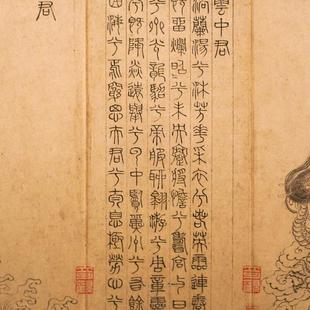 雲中君
浴蘭湯兮沐芳華采衣兮若英靈連蜷
既留爛昭兮未央蹇將憺兮壽宮與日
兮齊光兮龍駕兮帝服聊翱游兮周章靈
兮既降猋遠舉兮雲中覽冀州兮有餘
四海兮焉窮思夫君兮太息極勞心兮
君